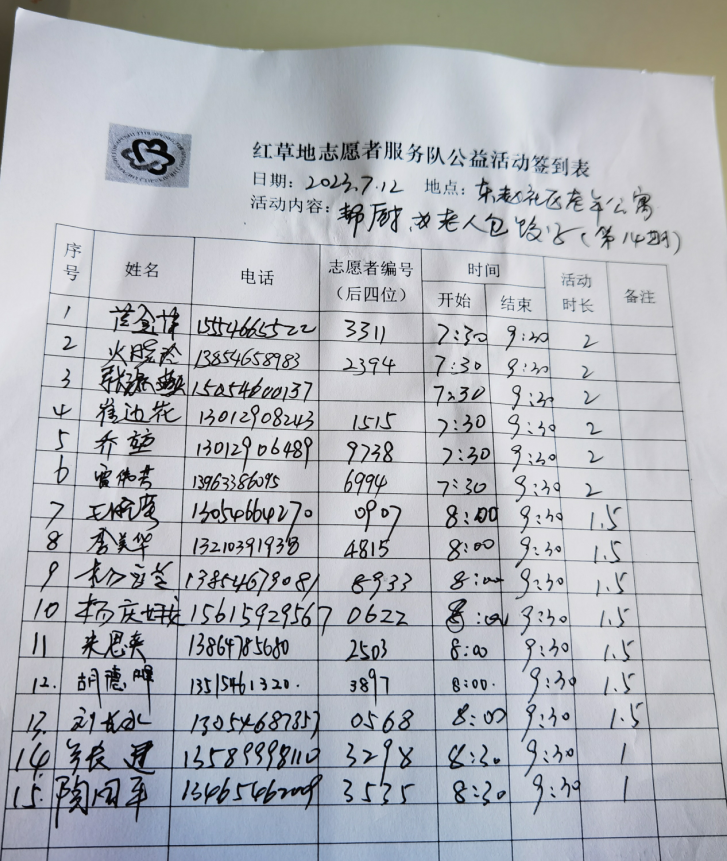 红草地志愿者服务队公益活动签到表
日期: 2023.7.12 地点: 东赵社区老年公寓
活动内容: 帮厨,为老人包饺子(第14期)
序号 姓名 电话 志愿者编号(后四位) 时间 开始 结束 活动时长 备注
1 15546655522 3311 7:30 9:30 2
2 13854658983 2394 7:30 9:30 2
3 15054600137 7:30 9:30 2
4 崔迎花 13012908243 1515 7:30 9:30 2
5 乔堃 13012906489 9738 7:30 9:30 2
6 13963386095 6994 7:30 9:30 2
7 13054664270 0907 8:00 9:30 1.5
8 李美华 13210391938 4815 8:00 9:30 1.5
9 13854679081 8933 8:00 9:30 1.5
10 15615929567 0622 8:00 9:30 1.5
11 宋思英 13864785680 2503 8:00 9:30 1.5
12. 胡德牌 13515461320. 3897 8:00. 9:30 1.5
13. 刘长水 13054687357 0568 8:00 9:30 1.5
14. 13589998110 3298 8:30 9:30 1
15. 陶同军 13465462009 3535 8:30 9:30 1